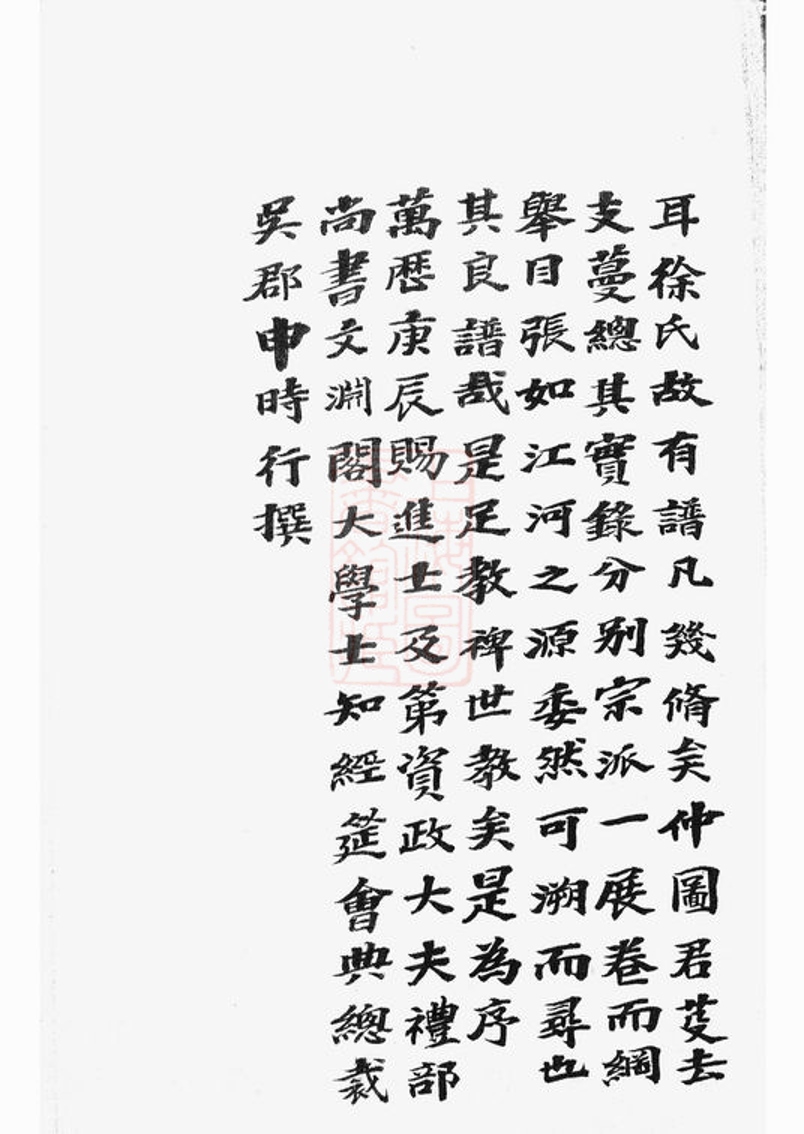 耳徐氏故有譜凡幾脩矣仲圖君芟去
支蔓總其實錄分别宗派一展卷而綱
舉目張如江河之源委然可溯而尋也
其良譜哉是足教禆世教矣是為序
萬歷庚辰賜進士及第資政大夫禮部
尚書文淵閣大學士知經筵會典總裁
吳郡申時行撰